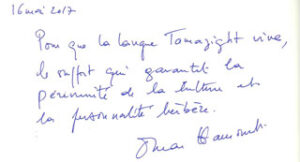 16 mai 2017
Pour que la langue Tamazight vive,
le support qui garantit la
pérennité de la culture et
la personnalité berbère.